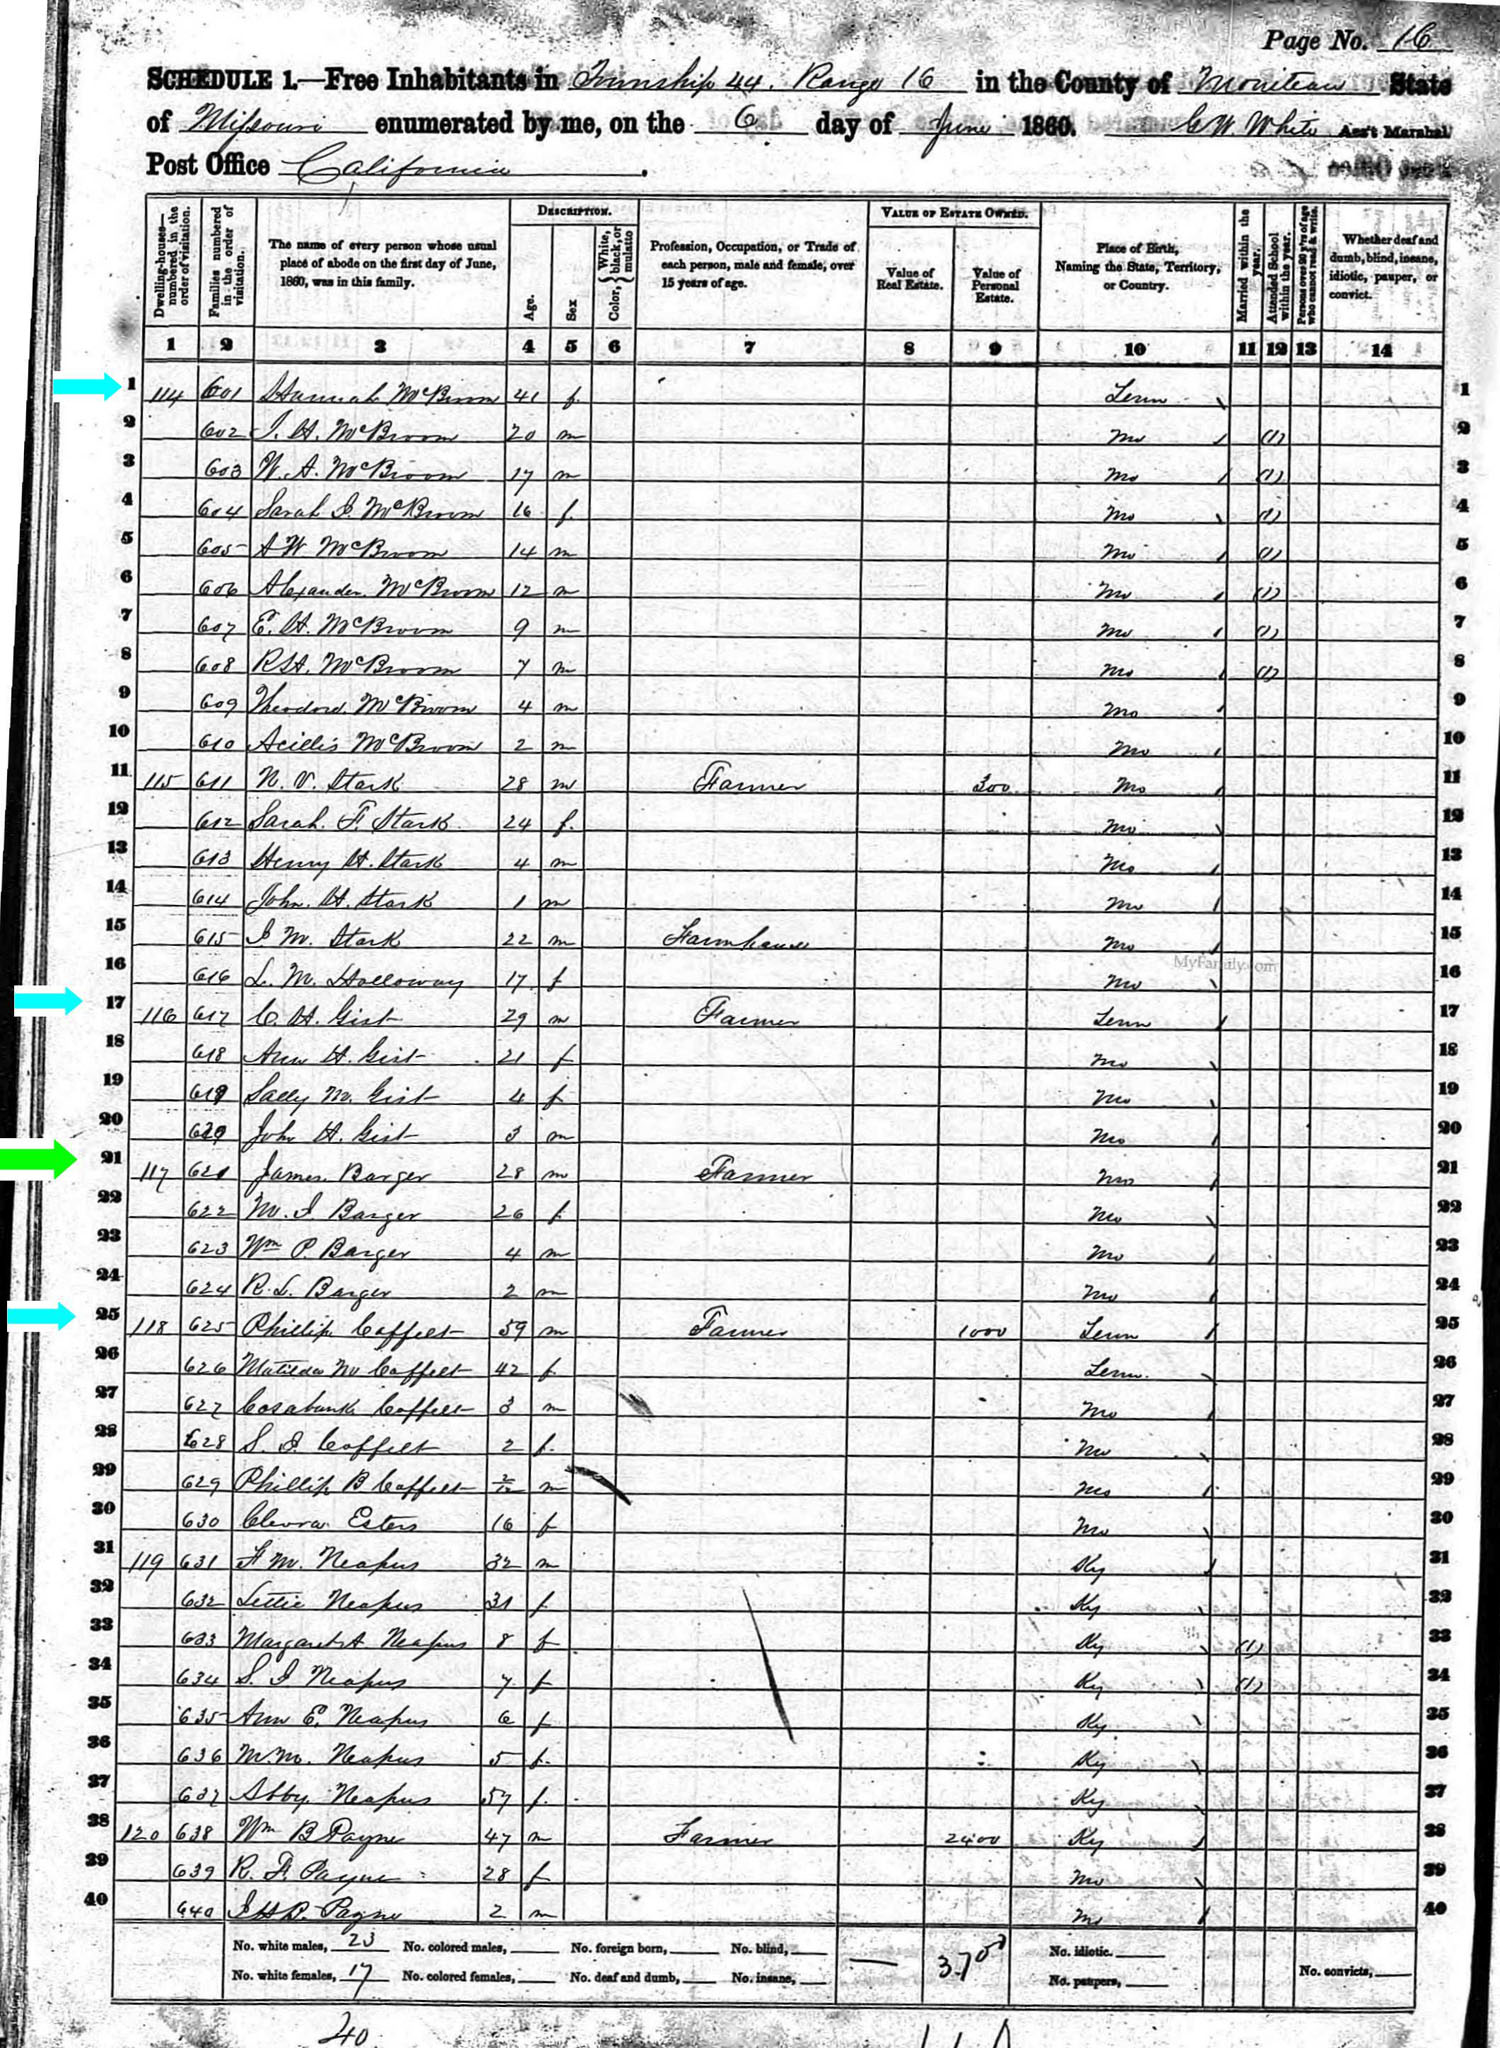 Page No. 16
SCHEDULE 1.—Free Inhabitants in Township 44. Range 16 in the County of Moniteau State
of Missouri enumerated by me, on the 6 day of June 1860. C W White Ass't Marshal
Post Office California.
DESCRIPTION. VALUE OF ESTATE OWNED.
Dwelling-houses—numbered in the order of visitation. Families numbered in the order of visitation. The name of every person whose usual place of abode on the first day of June, 1860, was in this family. Age. Sex Color, White, black, or mulatto Profession, Occupation, or Trade of each person, male and female, over 15 years of age. Value of Real Estate. Value of Personal Estate. Place of Birth, Naming the State, Territory, or Country. Married within the year. Attended School within the year. Persons over 20 y'rs of age who cannot read & write. Whether deaf and dumb, blind, insane, idiotic, pauper, or convict.
1 2 3 4 5 6 7 8 9 10 11 12 13 14
1 114 601 Hannah McBroom 41 f Tenn 1
2 602 J. H. McBroom 20 m Mo (1) 2
3 603 W. A. McBroom 17 m Mo (1) 3
4 604 Sarah J McBroom 16 f Mo (1) 4
5 605 A W McBroom 14 m Mo (1) 5
6 606 Alexander McBroom 12 m Mo (1) 6
7 607 E. H. McBroom 9 m Mo (1) 7
8 608 R H. McBroom 7 m Mo (1) 8
9 609 Theodore McBroom 4 m Mo 9
10 610 Acillis McBroom 2 m Mo 10
11 115 611 N. V. Stark 28 m Farmer 300 Mo 11
12 612 Sarah F. Stark 24 f. Mo 12
13 613 Henry H. Stark 4 m Mo 13
14 614 John. H. Stark 1 m Mo 14
15 615 J M. Stark 22 m Mo 15
MyFamily.com
16 616 L. M. Holloway 17 f Mo 16
17 116 617 C. H. Gist 29 m Farmer Tenn 17
18 618 Ann H. Gist 21 f Mo 18
19 619 Sally M. Gist 4 f Mo 19
20 620 John H. Gist 3 m Mo 20
21 117 621 James Barger 28 m Farmer Mo 21
22 622 M. J Barger 26 f. Mo 22
23 623 Wm P. Barger 4 m Mo 23
24 624 R. L. Barger 2 m Mo 24
25 118 625 Phillip Coffelt 59 m Farmer 1000 Tenn 25
26 626 Matilda M Coffelt 42 f. Tenn. 26
27 627 Coffelt 3 m Mo 27
28 628 S. J Coffelt 2 f. Mo 28
29 629 Phillip B Coffelt 2/12 m Mo 29
30 630 Esters 16 f Mo 30
31 119 631 F M. Neapus 32 m Ky 31
32 632 Lettie Neapus 31 f Ky 32
33 633 Margaret A Neapus 8 f Ky (1) 33
34 634 S. J Neapus 7 f Ky (1) 34
35 635 Ann E. Neapus 6 f Ky 35
36 636 M. M. Neapus 5 f. Ky 36
37 637 Abby Neapus 57 f. Ky 37
38 120 638 Wm B Payne 47 m Farmer 2400 Ky 38
39 639 R. F. Payne 28 f Mo 39
40 640 Payne 2 m Mo 40
No. white males, 23 No. colored males, No. foreign born, No. blind, No. idiotic.
No. white females, 17 No. colored females, No. deaf and dumb, No. insane, 3700 No. paupers, No. convicts,
40